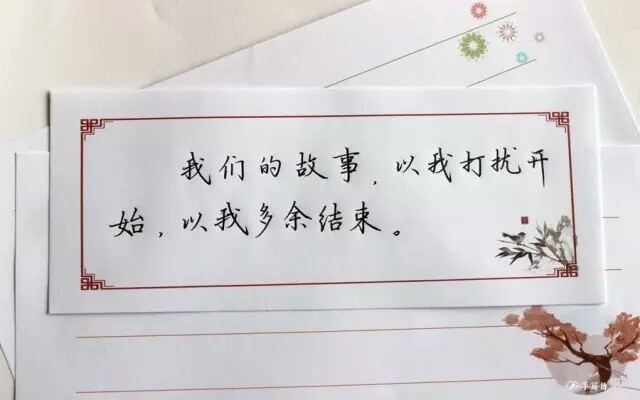 我们的故事，以我打扰开
始，以我多余结束。
手写情